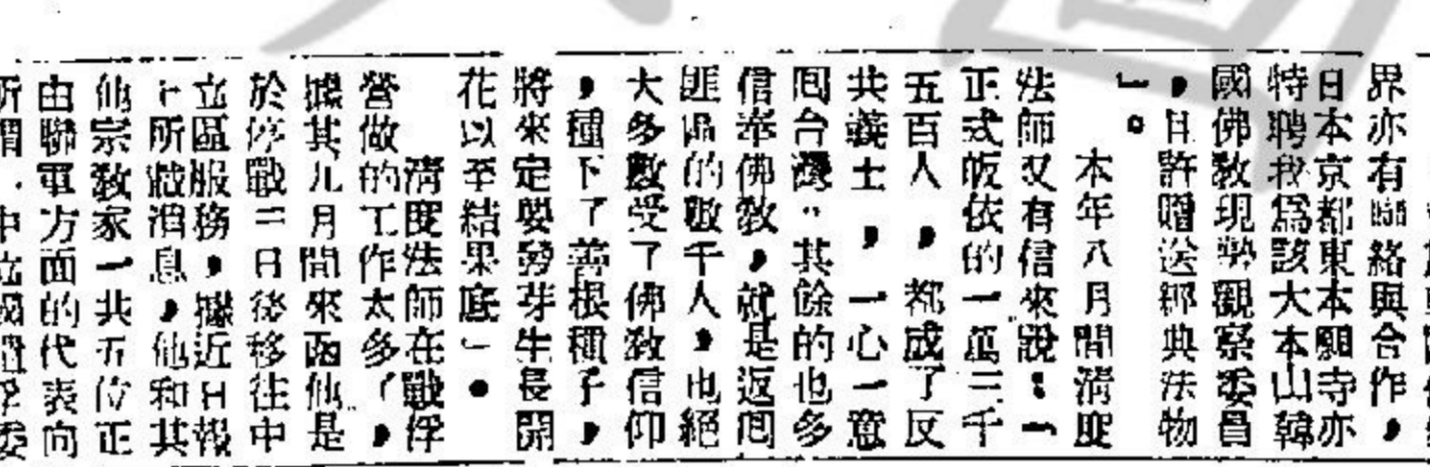 界亦有聯絡與合作，
日本京都東本願寺亦
特聘我爲該大本山韓
國佛敎現勢觀察委員
，且許贈送經典法物
」。
本年八月間淸度
法師又有信來說：「
正式皈依的一萬三千
五百人，都成了反
共義士，一心一意
囘台灣，其餘的也多
信奉佛敎，就是返囘
匪區的數千人，也絕
大多數受了佛敎信仰
，種下了善根種子，
將來定要發芽生長開
花以至結果底」。
淸度法師在戰俘
營做的工作太多了，
據其九月間來函他是
於停戰三日後移往中
立區服務，據近日報
上所載消息，他和其
他宗敎家一共五位正
由聯軍方面的代表向